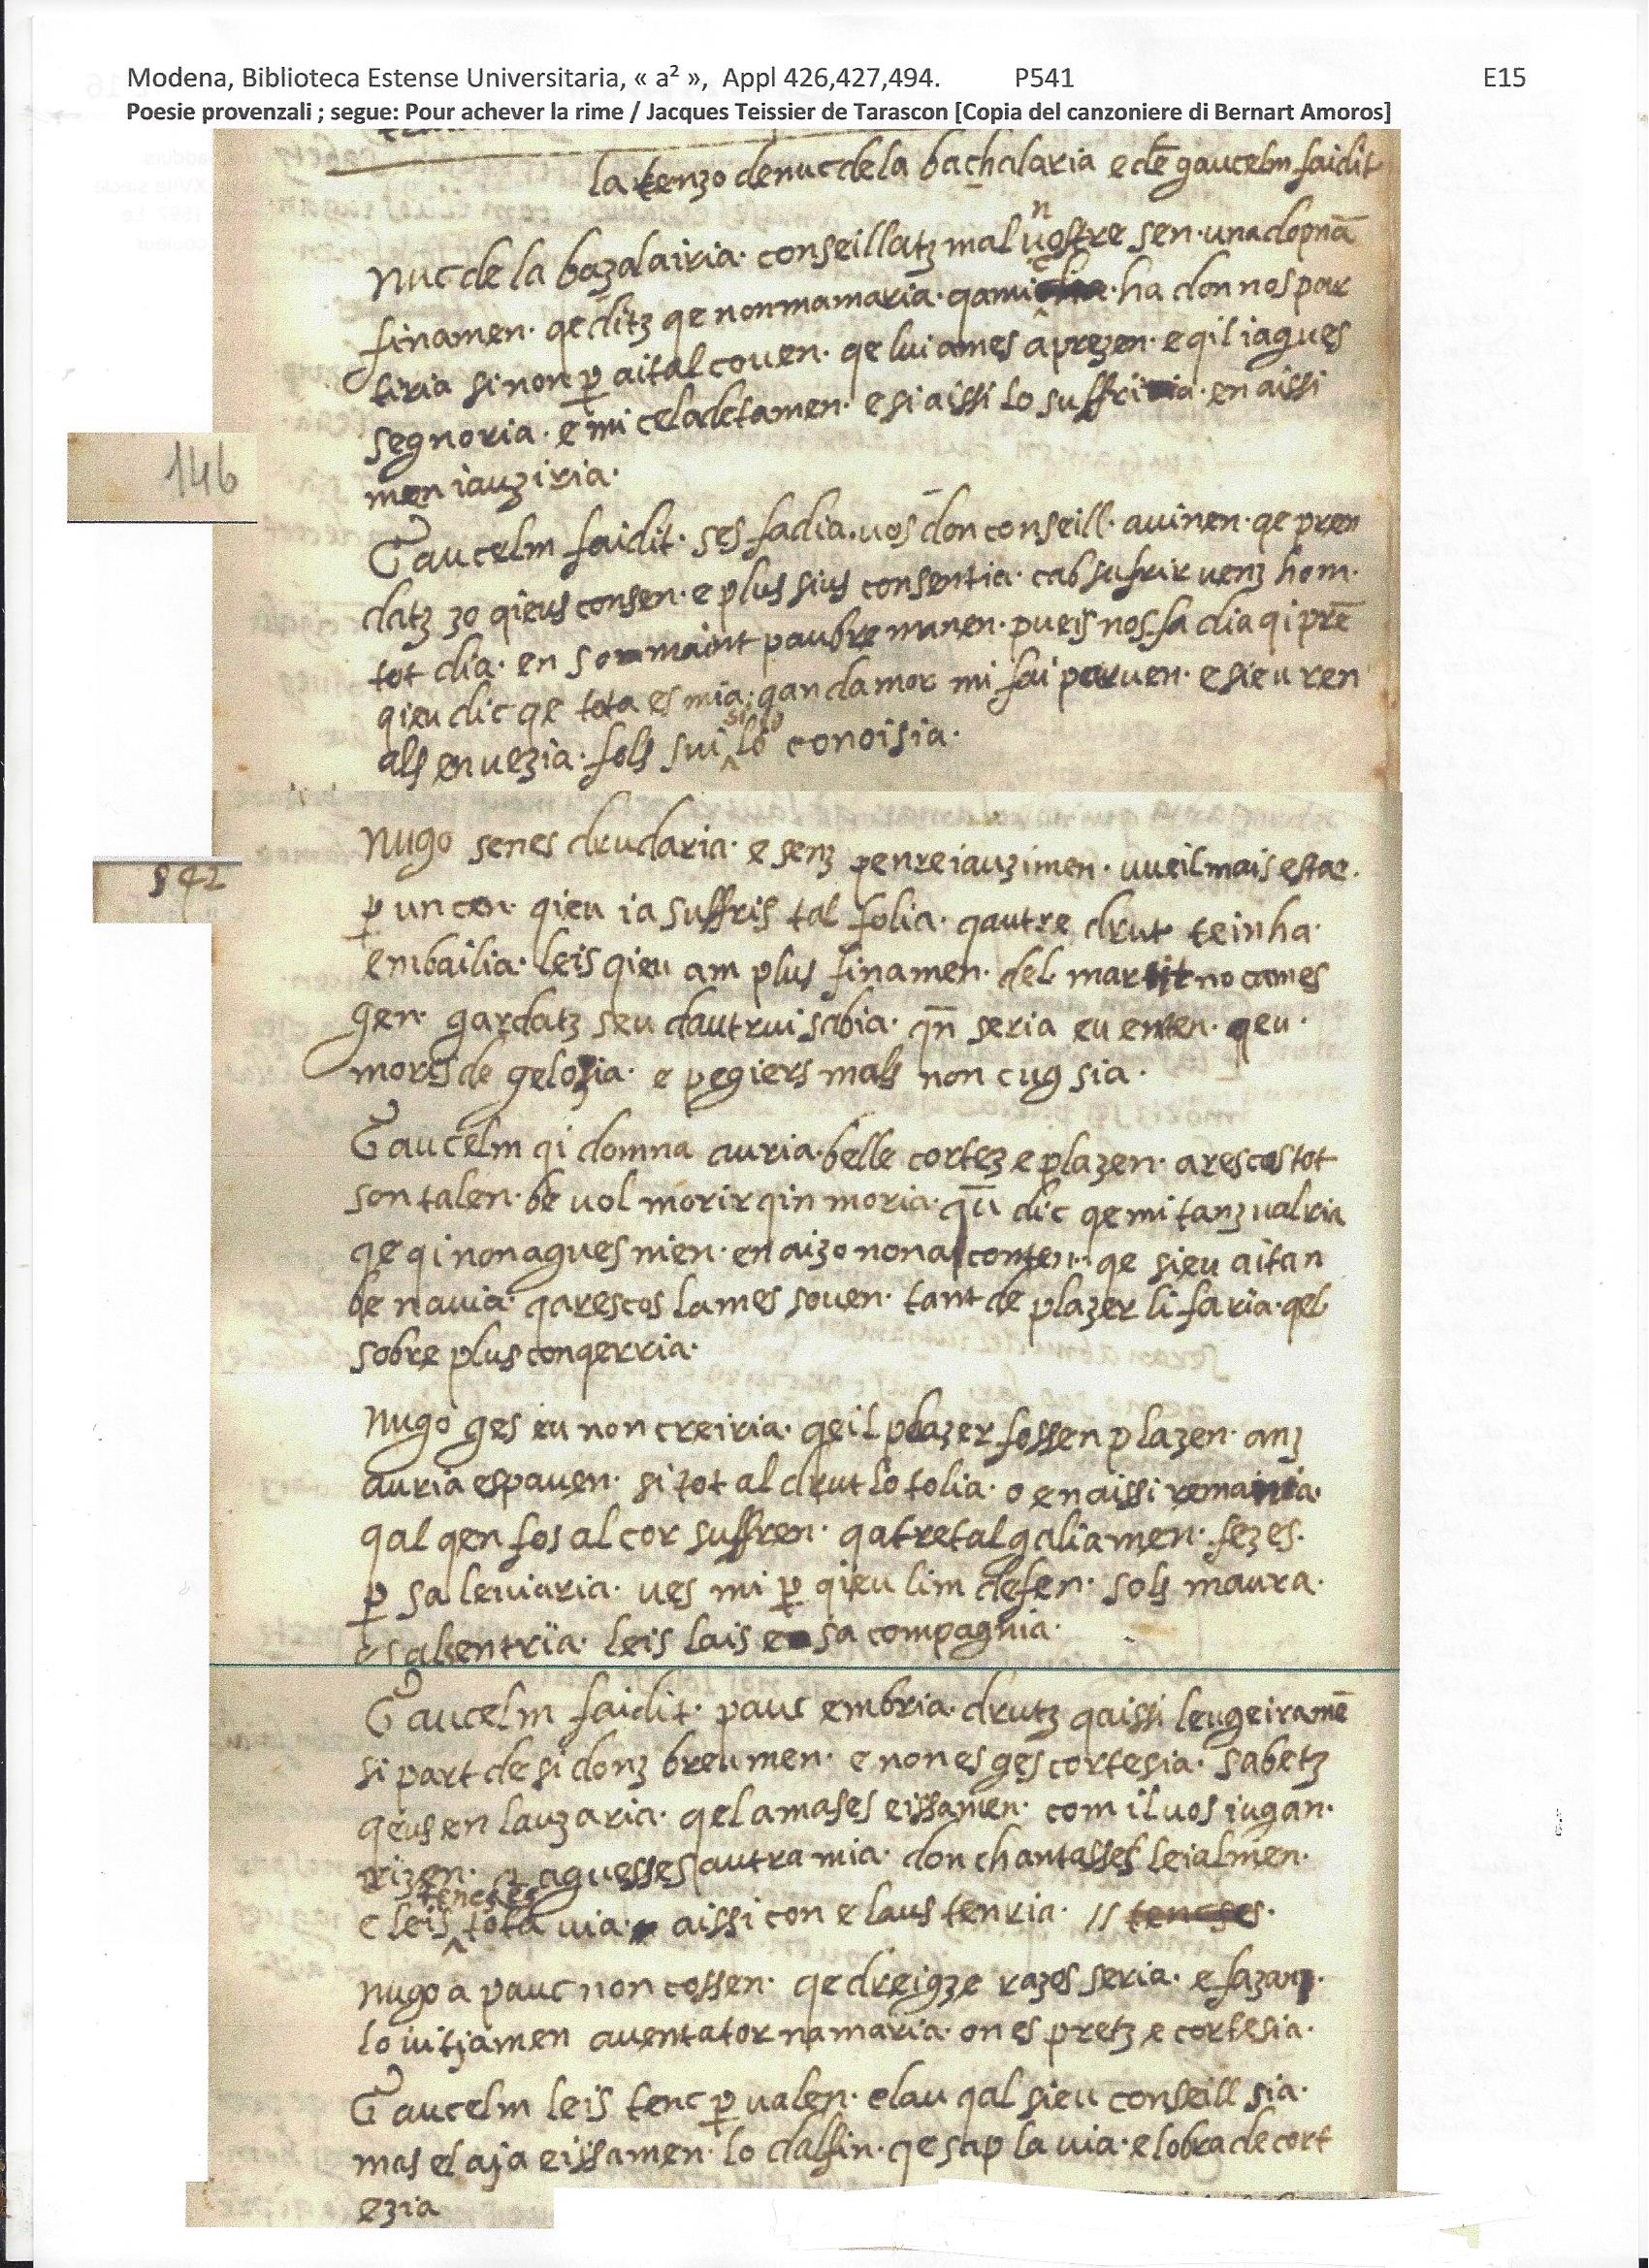 Modena, Biblioteca Estense Universitaria, « a² », Appl 426,427,494. P541 E15
Poesie provenzali ; segue: Pour achever la rime / Jacques Teissier de Tarascon [Copia del canzoniere di Bernart Amoros]
la tenzo denucdela bachalaria e de gaucelm faidit
nuc de la bazalairia· conseillatz mal uostre sen· una dopnā
n
finamen· qe ditz qe non mamaria· qami ha don nos par
tiria si non p̱ aital couen· qe lui ames aprezen· e qil iagues
segnoria· e mi celadetamen· e si aissi lo suffriria· en aissi
146
men iauziria·
Gaucelm faidit· ses fadia· uos don conseill· auinen· qe pren
datz zo qieus consen· e plus sius consentia· cab sufrir uenz hom·
tot dia· en son maint paubre manen· pueis nos fadia qi prē
qieu dic qe tota es mia· qan damor mi fai paruen· e sieu ren
als enuezia· fols sui si lo conoisia·
nugo senes drudaria· e senz penre iauzimen· uueil mais estar·
542
p̱ un cen· qieu ia suffris tal folia· qautre drut teinha·
embailia· leis qieu am plus finamen· del marit no cames
gen· gardatz seu dautrui sabia· qn̄ seria eu enten· qeu·
moris de gelozia· e pegiers mals non cug sia·
Gaucelm qi domna auria· belle cortez e plazen· arescostot
son talen· be uol morir qin moria· qū dic qe mi tanz ualria
qe qi non agues nien· en aizo nona conten· qe sieu aitan
be nauia· qarescos lames souen· tant de plazer li faria· qel·
sobre plus conqerria·
nugo ges eu non creiria· qeil plazer fossen plazen· anz
auria espauen· si tot al drut lo tolia· o en aissi remania·
qal qen fos al cor suffren· qatretal galiamen· fezes·
p̱ sa leuiaria· ues mi p̱ qieu lim defen· sols maura·
es absentrïa· leis lais e sa compagnia·
Gaucelm faidit· pauc embria· drutz qaissi leugeiramē
si part de si donz breumen· e non es ges cortesia· sabetz
qeus en lauzaria· qel amases eissamen· com il uos iugan·
rizen· aguesses autra mia· don chantasses leialmen·
tencses
e leis tota uia· aissi con e laus tenria· // tencses·
nugo a pauc non cossen· qe dreigz e razos seria· e fazam·
lo iutjamen auentator namaria· on es pretz e cortesia·
Gaucelm leis tenc p̱ ualen· e lau qal sieu conseill sia·
mas el aja eissamen· lo dalfin· qe sap la uia· e lobra de cort
ezia